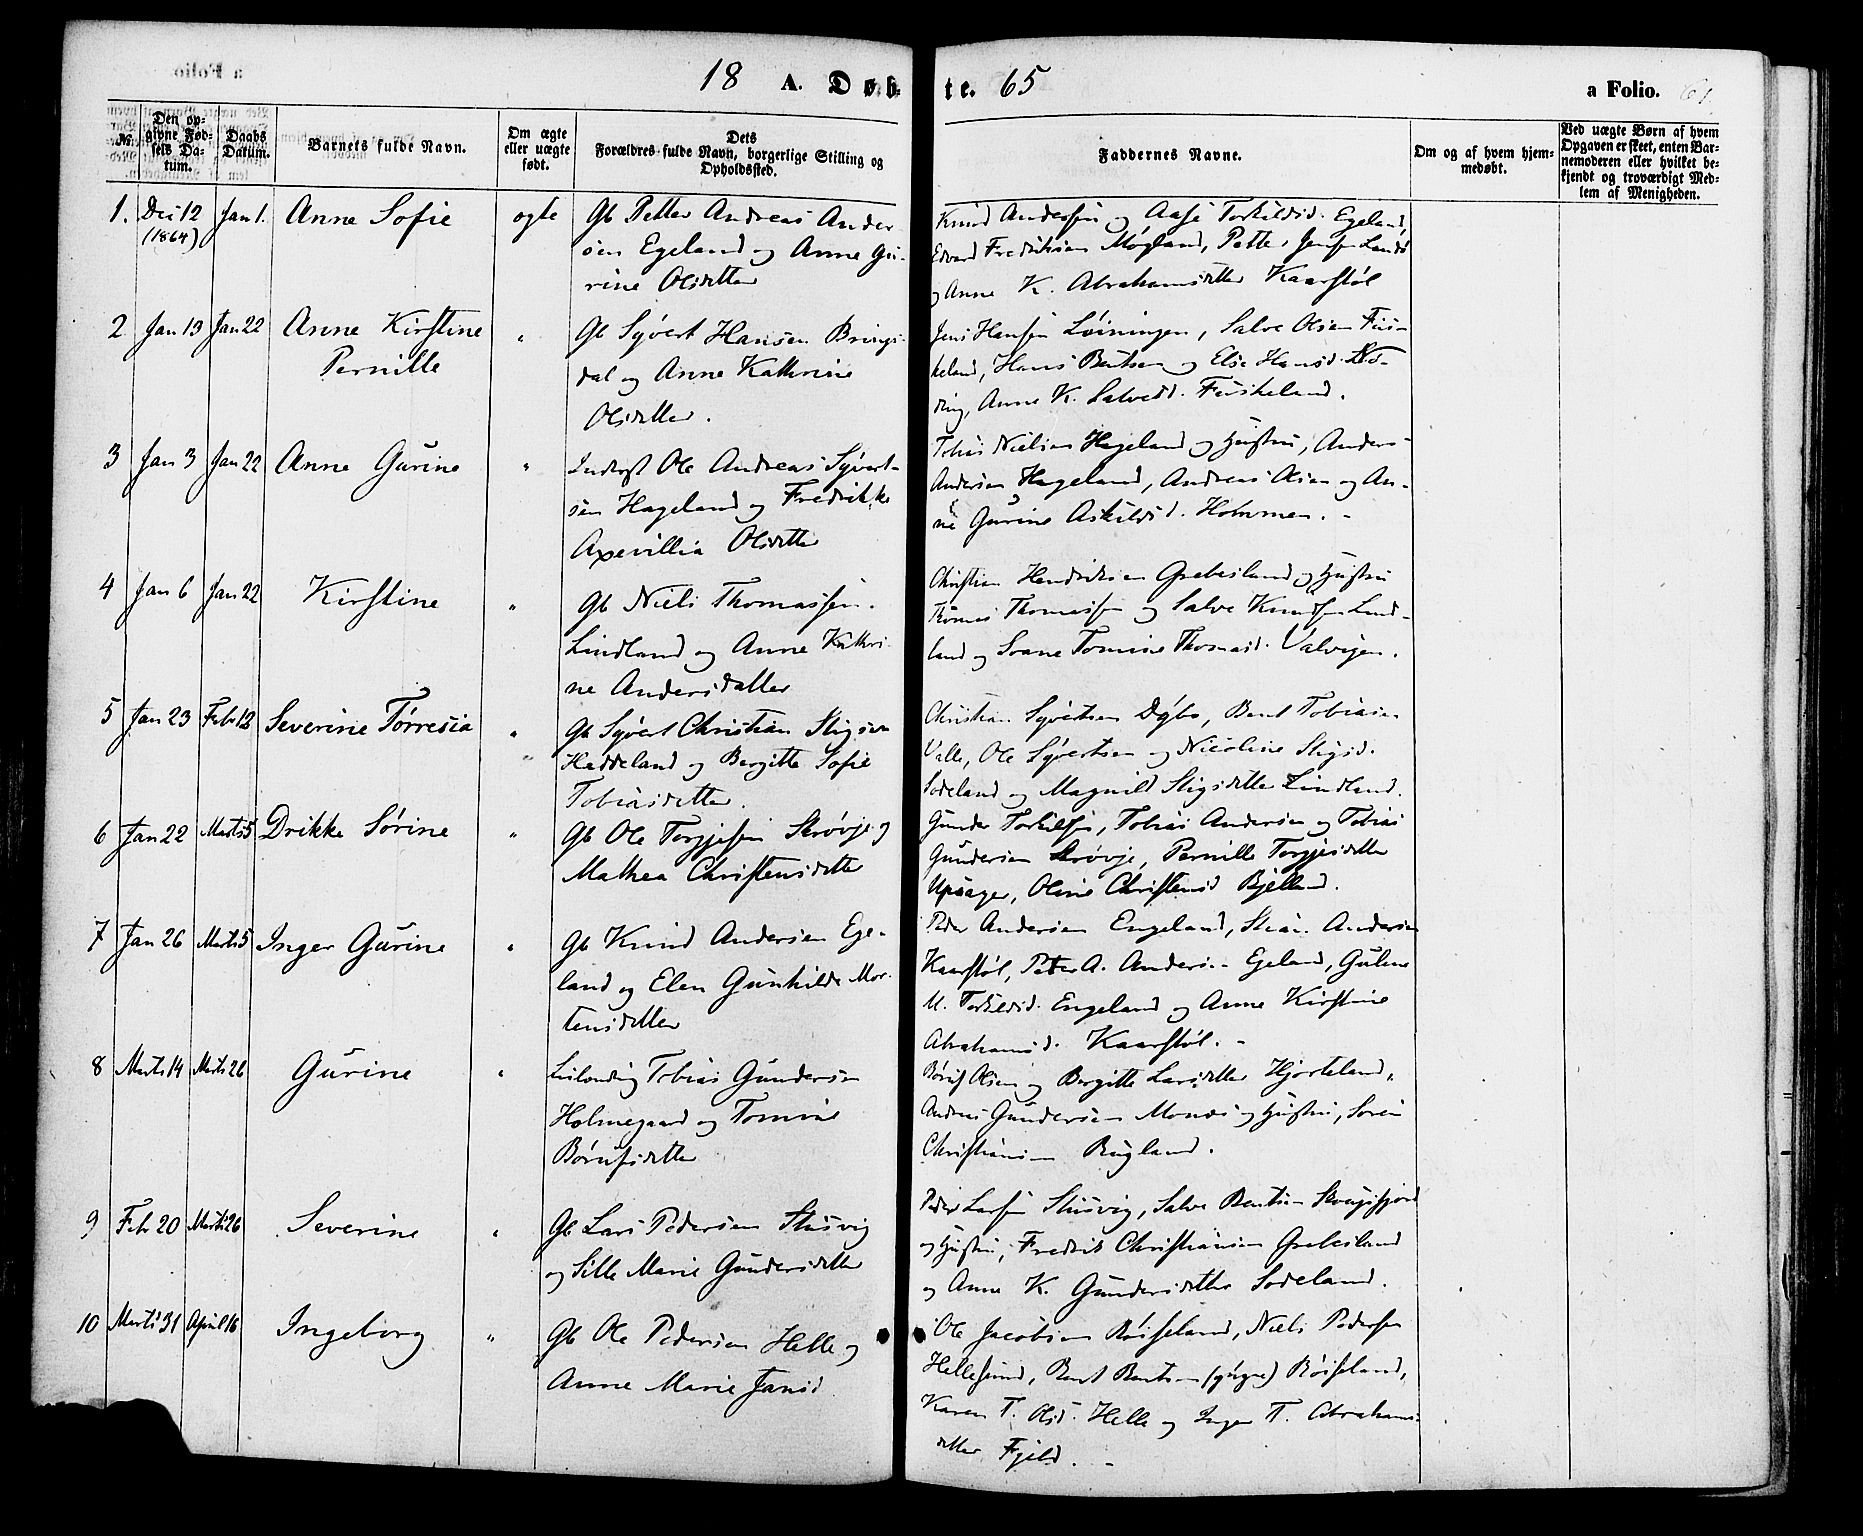 18 A. Døb-
te. 65
a Folio. 61.
№
Den op-
givne Fød-
sels Da-
tum.
Daabs
Datum.
Barnets fulde Navn.
Om ægte
eller uægte
født.
Dets
Forældres fulde Navn, borgerlige Stilling og
Opholdssted.
Faddernes Navne.
Om og af hvem hjem-
medøbt.
Ved uægte Børn af hvem
Opgaven er skeet, enten Bar-
nemoderen eller hvilket be-
kjendt og troværdigt Med-
lem af Menigheden.
1. Dec 12 Jan 1. Anne Sofie ægte Gb Petter Andreas Ander
(1864)
sen Egeland og Anne Gu-
rine Olsdatter
Knud Anderssen og Aase Torkildsd. Egeland,
Edvard Fredriksen Møgland, Petter Jensen Landø
og Anne K. Abrahamsdatter Kaarstøl
2 Jan 13 Jan 22 Anne Kirstine " Gb Syvert Hansen Brings-
Pernille
dal og Anne Kathrine
Olsdatter.
Jens Hansen Løiningen, Salve Olsen Fus-
keland, Hans Bentsen og Else Hansd.
Anne K. Salvesd. Fuskeland.
3 Jan 3 Jan 22 Anne Gurine " Inderst Ole Andreas Syvert-
sen Hageland og Fredrikke
Axevillia Olsdatter
Tobias Nielsen Hageland og Hustru, Anders
Andersen Hageland, Andreas Olsen og An-
ne Gurine Askildsd. Holmen. -
4 Jan 6 Jan 22 Kirstine " Gb Niels Thomassen.
Lindland og Anne Kathri-
ne Andersdatter
Christian Hendriksen Grebesland og Hustru
Tomas Thomassen og Salve Knudsen Lind-
land og Soane Tomine Thomasd. Valvigen.
5 Jan 23 Febr 12 Severine Tørresia " Gb Syvert Christian Stigsen
Heddeland og Bergitte Sofie
Tobiasdatter.
Christian Syvertsen Dybo, Bent Tobiasen
Valle, Ole Syvertsen og Nicoline Stigsd.
Sodeland og Magnild Stigsdatter Lindland.
6 Jan 22 Marts 5 Drikke Sørine " Gb Ole Torgjesen Skrøvje og
Mathea Christensdatter
Gunder Torkilsen, Tobias Andersen og Tobias
Gundersen Skrøvje, Pernille Torgjesdatter
Upsager, Oline Christensd Bjelland.
7 Jan 26 Marts 5 Inger Gurine " Gb Knud Andersen Ege-
land og Elen Gunhilde Mor-
tensdatter
Peder Andersen Engeland, Stian Andersen
Kaarstøl, Peter A. Andersen Egeland, Gulene
M. Torkildsd. Engeland og Anne Kirstine
Abrahamsd. Kaarstøl. -
8 Marts 14 Marts 26 Gurine " Leilænding Tobias Gundersen
Holmegaard og Tomine
Børufsdatter
Børuf Olsen og Bergitte Larsdatter Hjorteland,
Andreas Gundersen Monæs og Hustru, Søren
Christiansen Rugland.
9 Febr 20 Marts 26 Severine " Gb Lars Pedersen Stusvig
og Sille Marie Gundersdatter
Peder Larsen Stusvig, Salve Bentsen Skougsfjord
og Hustru, Fredrik Christiansen Grebesland
og Anne K. Gundersdatter Sodeland.
10 Marts 31 April 16 Ingeborg " Gb Ole Pedersen Helle og
Anne Marie Jansd
Ole Jacobsen Røiseland, Niels Pedersen
Hellesund, Bent Bentsen (yngre) Røiseland,
Karen T. Olsd. Helle og Inger T. Abrahams-
datter Fjeld. -